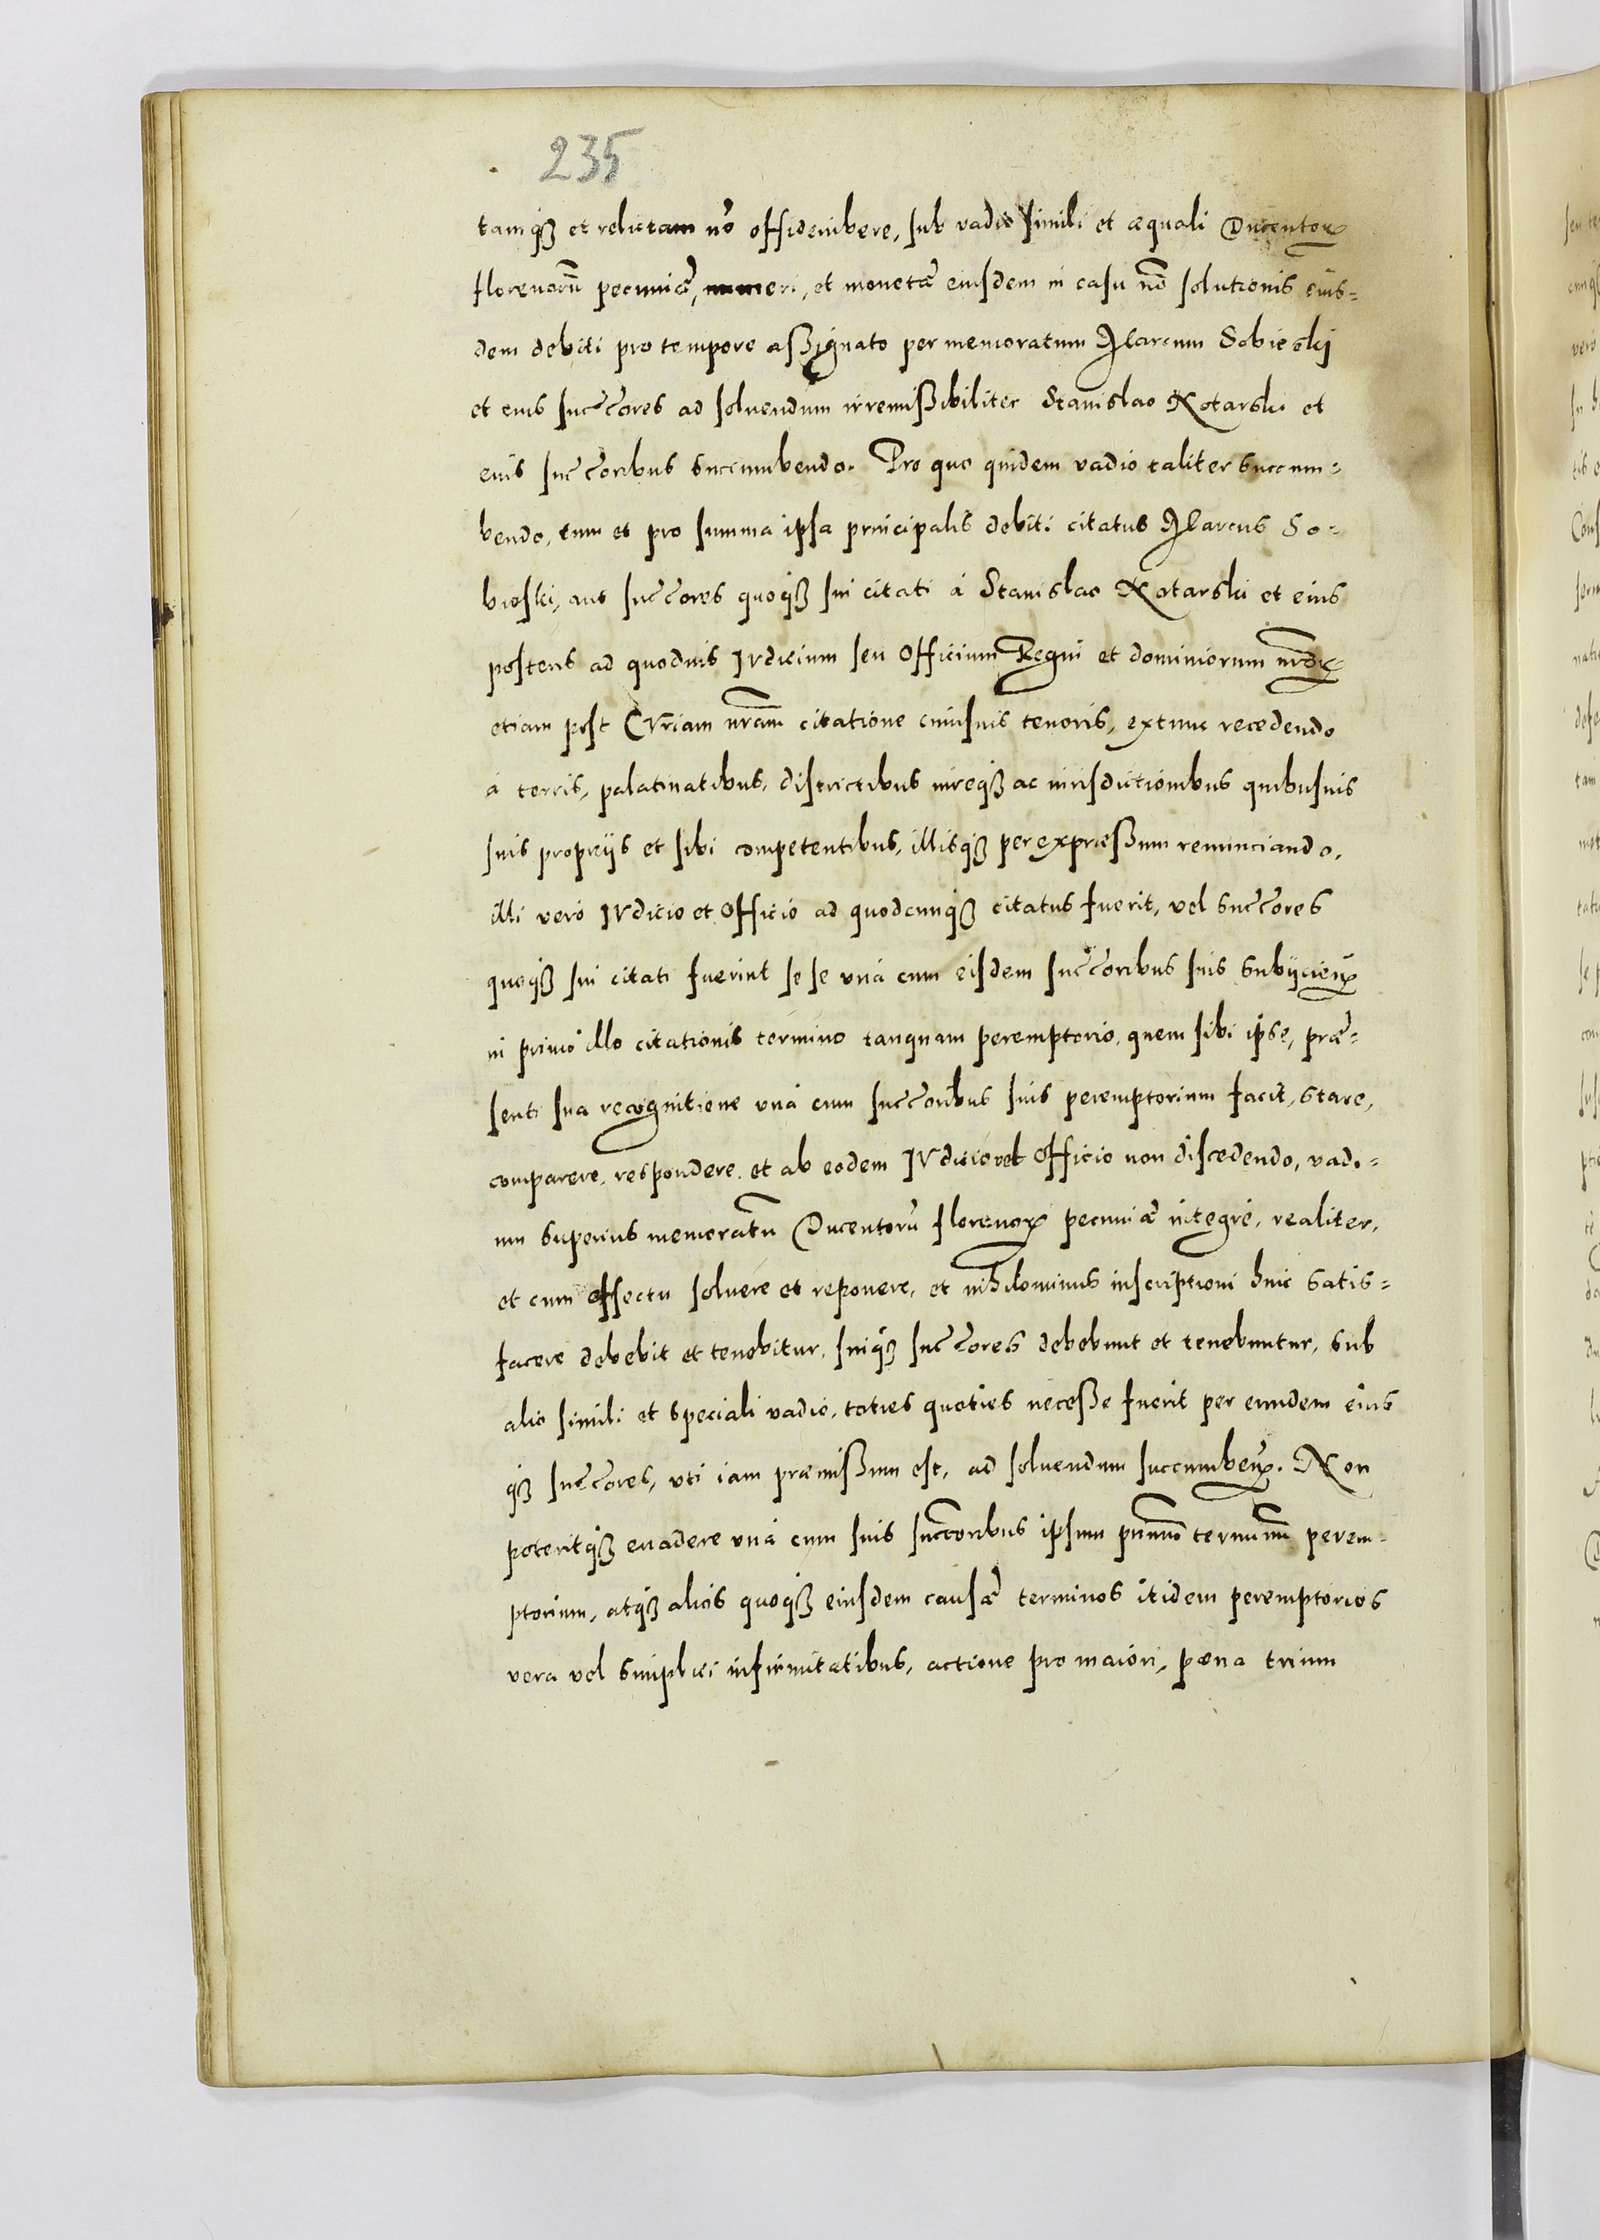 235
tamq3 et relictam nō offidenibere, sub vadio simili et æquali Ducentoꝝ
florenorū pecuniæ, numeri, et monetæ eiusdem in casu nō solutionis eius=
dem debiti pro tempore aßignato per memoratum Marcum Sobieski
et eius succores ad soluendum irremißibiliter Stanislao Notarski et
eius succoribus succumbendo. Pro quo quidem vadio taliter succum=
bendo, cum et pro summa ipsa principalis debiti citatus Marcus So=
bieski, aut succores quoq3 sui citati à Stanislao Notarski et eius
posteris ad quoduis IVdicium seu Officium Regni et dominiorum nrōꝝ
etiam post CVriam nram̄ citatione cuiusuis tenoris, extunc recedendo
à terris, palatinatibus, districtibus iureq3 ac iurisdictionibus quibusuis
suis proprijs et sibi competentibus, illisq3 per expræßum renunciando,
illi verò IVdicio et Officio ad quodcunq3 citatus fuerit, vel succores
quoq3 sui citati fuerint se se vnà cum eisdem succoribus suis subijcienꝝ
in primo illo citationis termino tanquam peremptorio, quem sibi ipse, præ=
senti sua recognitione vnà cum succoribus suis peremptorium facit, stare,
comparere, respondere, et ab eodem IVdicio vel Officio non discedendo, vadi=
um superius memoratū Ducentorū florenoꝝ pecuniæ integrè, realiter,
et cum effectu soluere et reponere, et nihilominus inscriptioni huic satis=
facere debebit et tenebitur, suiq3 succores debebunt et tenebuntur, sub
alio simili et speciali vadio, toties quoties neceße fuerit per eundem eius
q3 succores, vti iam præmißum est, ad soluendum succumbenꝝ. Non
poteritq3 euadere vnà cum suis succoribus ipsum primum terminum perem=
ptorium, atq3 alios quoq3 eiusdem causæ terminos itidem peremptorios
vera vel simplici infirmitatibus, actione pro maiori, pœna trium